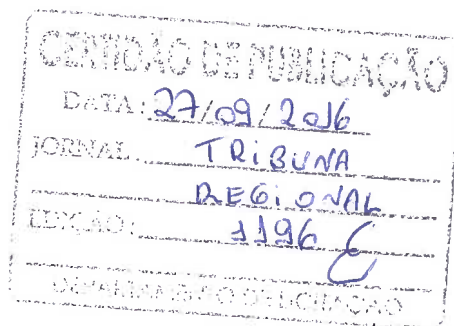 CERTIDÃO DE PUBLICAÇÃO
DATA: 27/09/2016
JORNAL: TRIBUNA
REGIONAL
EDIÇÃO: 1196
DEPARTAMENTO DE LICITAÇÃO